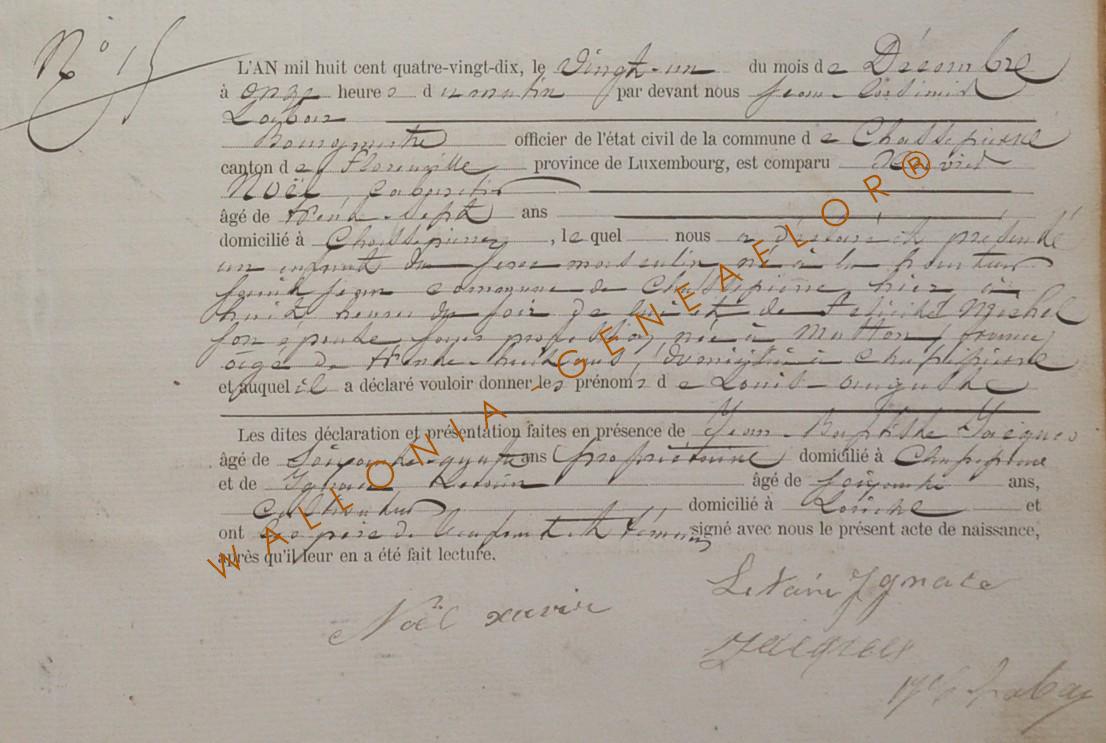 N° 15
L'AN mil huit cent quatre-vingt-dix, le Vingt-un du mois de Décembre
à onze heures du matin par devant nous Jean-
Bourgmestre officier de l'état civil de la commune de Chassepierre
canton de Florenville province de Luxembourg, est comparu
Noël cabaretier
âgé de trente-sept ans
domicilié à Chassepierre, lequel nous a déclaré et présenté
un enfant du sexe masculin né à la
commune de Chassepierre, hier à
huit heures du soir de lui et de Félicité Michel
son épouse sans profession, née à Matton, france,
âgé de trente-huit ans, domiciliée à Chassepierre
et auquel il a déclaré vouloir donner les prénoms de Louis-auguste
Les dites déclaration et présentation faites en présence de Jean-Baptiste Jacques
âgé de Soixante-quatre ans propriétaire domicilié à Chassepierre
et de Ignace âgé de soixante ans,
Cultivateur domicilié à et
ont Le père de l'enfant et témoins signé avec nous le présent acte de naissance,
après qu'il leur en a été fait lecture.
Noël xavier
Ignace
Jacques
WALLONIA - GENEAFLOR®